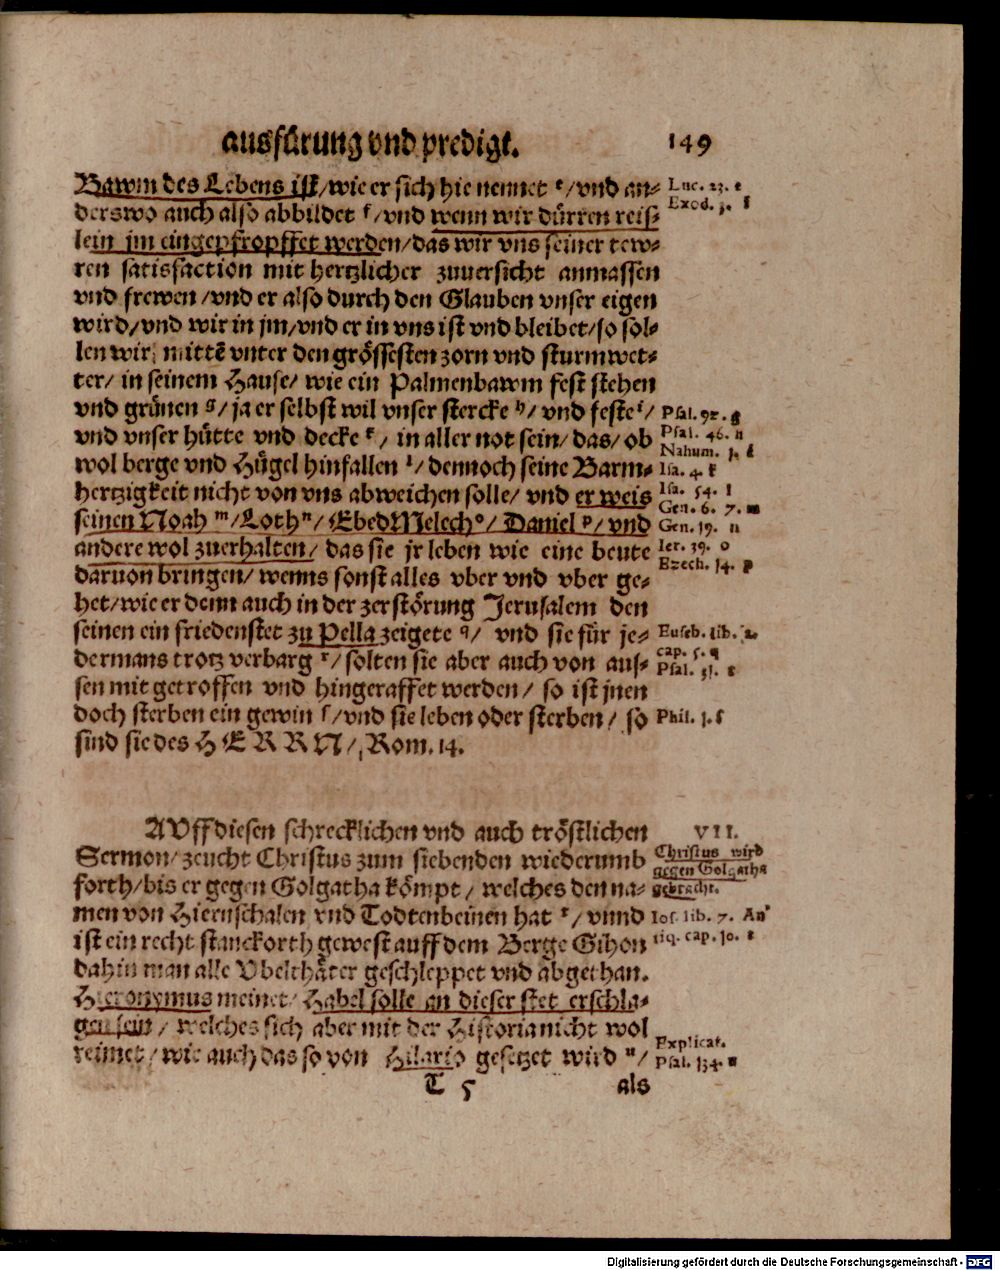 ausfürung vnd predigt. 149
Bawm des Lebens ist/wie er sich hie nennet ᵉ/vnd an-
Luc. 23. e
derswo auch also abbildet ᶠ/vnd wenn wir dürren reiß-
Exod. 3. f
lein jm eingepfropffet werden/das wir vns seiner tew-
ren satisfaction mit hertzlicher zuuersicht anmassen
vnd frewen/vnd er also durch den Glauben vnser eigen
wird/vnd wir in jm/vnd er in vns ist vnd bleibet/so sol-
len wir mittē vnter den grössesten zorn vnd sturmwet-
ter/ in seinem Hause/ wie ein Palmenbawm fest stehen
vnd grünen ᵍ/ ja er selbst wil vnser stercke ʰ/ vnd feste ⁱ/
Psal. 92. g
vnd vnser hütte vnd decke ᵏ/ in aller not sein/das/ ob
Psal. 46. h
Nahum. 1. i
wol berge vnd Hügel hinfallen ˡ/ dennoch seine Barm-
Isa. 4. k
hertzigkeit nicht von vns abweichen solle/ vnd er weis
Isa. 54. l
seinen Noah ᵐ/Loth ⁿ/ EbedMelech ᵒ/ Daniel ᵖ/ vnd
Gen. 6. 7. m
Gen. 19. n
andere wol zuerhalten/ das sie jr leben wie eine beute
Ier. 39. o
daruon bringen/ wenns sonst alles vber vnd vber ge-
Ezech. 14. p
het/wie er denn auch in der zerstörung Jerusalem den
seinen ein friedenstet zu Pella zeigete ᑫ/ vnd sie für je-
Euseb. lib. 2.
cap. 5. q
dermans trotz verbarg ʳ/ solten sie aber auch von aus-
Psal. 31. r
sen mit getroffen vnd hingeraffet werden/ so ist jnen
doch sterben ein gewin ſ/vnd sie leben oder sterben/ so
Phil. 1. ſ
sind sie des HERRN/ Rom. 14.
AVff diesen schrecklichen vnd auch tröstlichen
VII.
Sermon/zeucht Christus zum siebenden wiederumb
Christus wird
gegen Golgatha
gebracht.
forth/bis er gegen Golgatha kömpt/ welches den na-
men von Hiernschalen vnd Todtenbeinen hat ᵗ/ vnnd
Ios. lib. 7. An-
tiq. cap. 10. t
ist ein recht stanckorth gewest auff dem Berge Gihon
dahin man alle Vbelthäter geschleppet vnd abgethan.
Hieronymus meinet/ Habel solle an dieser stet erschla-
gen sein/ welches sich aber mit der Historia nicht wol
reimet/ wie auch das so von Hilario gesetzet wird ᵘ/
Explicat.
Psal. 134. u
T 5 als
Digitalisierung gefördert durch die Deutsche Forschungsgemeinschaft - DFG